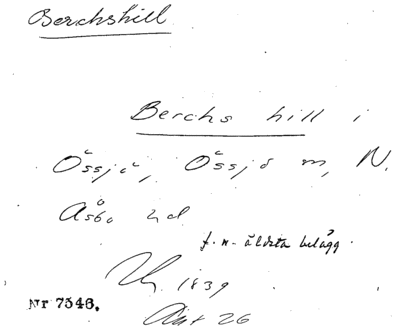 Berchshill
Berchs hill i
Össjö, Össjö sn, N.
Åsbo hd
f. n. äldsta belägg.
1839
Akt 26
Nr 7346.